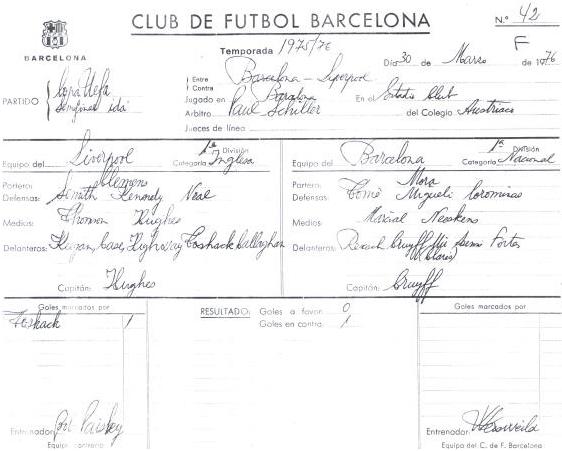 CLUB DE FUTBOL BARCELONA
N.º 42
BARCELONA
Temporada 1975/76
F
Día 30 de Marzo de 1976
PARTIDO Copa Uefa Semifinal ida
Entre Contra Barcelona - Liverpool
Jugado en Barcelona En el Estadio Club
Arbitro Paul Schiller del Colegio Austriaco
Jueces de línea
Equipo del Liverpool Categoría 1ª División Inglesa
Equipo del Barcelona Categoría 1ª División Nacional
Portero: Clemens
Defensas: Smith Kennedy Neal
Medios: Thomson Hughes
Delanteros: Keegan, Case, Highway Toshack Callaghan
Capitán: Hughes
Portero: Mora
Defensas: Tomé Migueli Corominas
Medios: Marcial Neskens
Delanteros: Rexach Cruyff Mir Asensi Fortes
(Clares)
Capitán: Cruyff
Goles marcados por
Toshack 1
RESULTADO: Goles a favor 0
Goles en contra 1
Goles marcados por
Entrenador: Paisley
Equipo contrario
Entrenador: Weisweiler
Equipo del C. de F. Barcelona